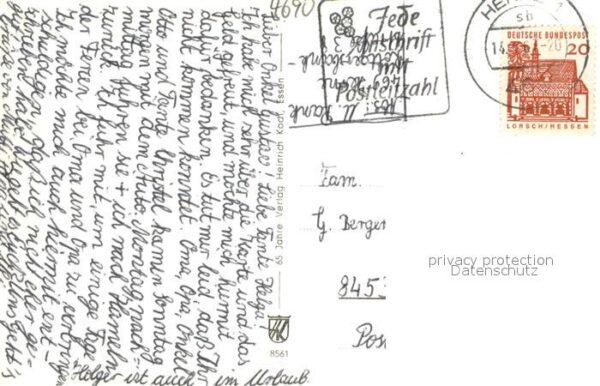 4690
Lieber Onkel Gustav! Liebe Tante Helga!
Ich habe mich sehr über die Karte und das
Geld gefreut, und möchte mich hiermit
dafür bedanken. Es tut mir leid, daß Ihr
nicht kommen konntet. Oma, Opa, Onkel
Otto und Tante Christel kamen Sonntag
morgen mit dem Auto. Montag nach-
mittag fuhren sie + ich nach Hameln
zurück. Ich fuhr mit um einige Tage
der Ferien bei Oma und Opa zu verbringen
Ich möchte mich auch hiermit ent-
schuldigen daß ich nicht eher ge-
schrieben habe
Holger ist auch im Urlaub.
65 Jahre Verlag Heinrich Koch, Essen
8561
Jede
Anschrift
mit
Postleitzahl
HERNE 1
sb
14.
-20
DEUTSCHE BUNDESPOST
20
LORSCH/HESSEN
Fam.
G. Berger
845
Pos
privacy protection
Datenschutz